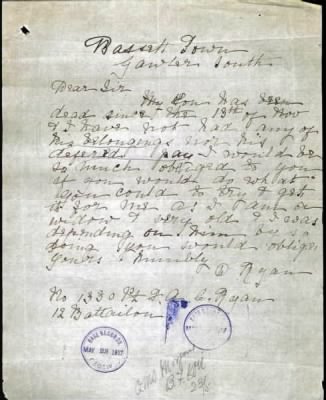 Bassett Town
Gawler South
Dear Sir
My Son has been
dead since the 13th of Nov
& I have not had any of
his belongings nor his
defered pay I would be
so much obliged to you
if you would do what
you could to try & get
it for me as I am a
widow & very old & I was
depending on him by so
doing you would oblige
yours humbly
Ryan
No 1330 Pt D. A. C. Ryan
12 Battalion
BASE RECORDS
MAY 1917